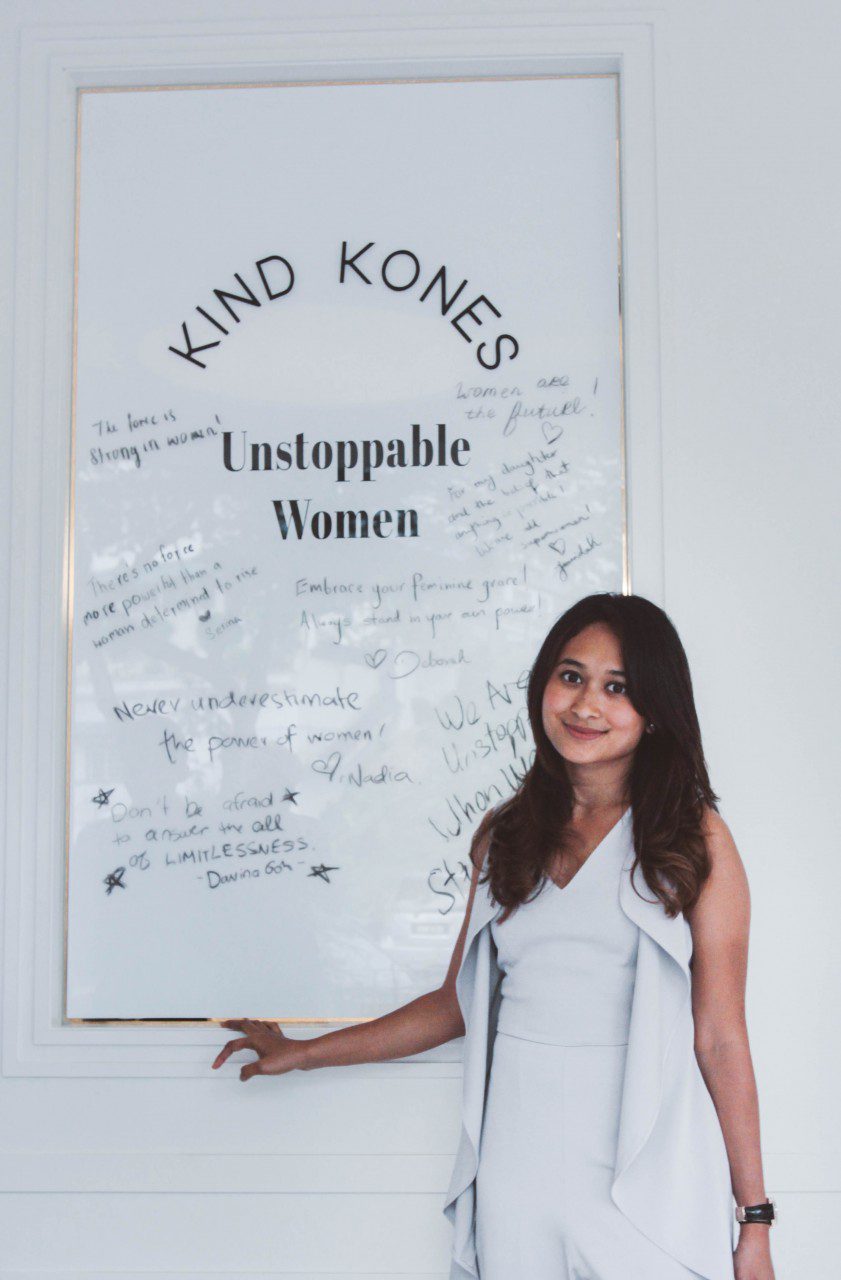 KIND KONES
Unstoppable
Women
The force is
strong in women!
Women are
the future!
For my daughter
and the belief that
anything is possible!
We are all superwomen!
There's no force
more powerful than a
woman determined to rise
Serina
Embrace your feminine grace!
Always stand in your own power!
Deborah
Never underestimate
the power of women!
Nadia.
We Are
Unstopp
When W
Sta
Don't be afraid
to answer the call
of LIMITLESSNESS.
- Davina Goh -